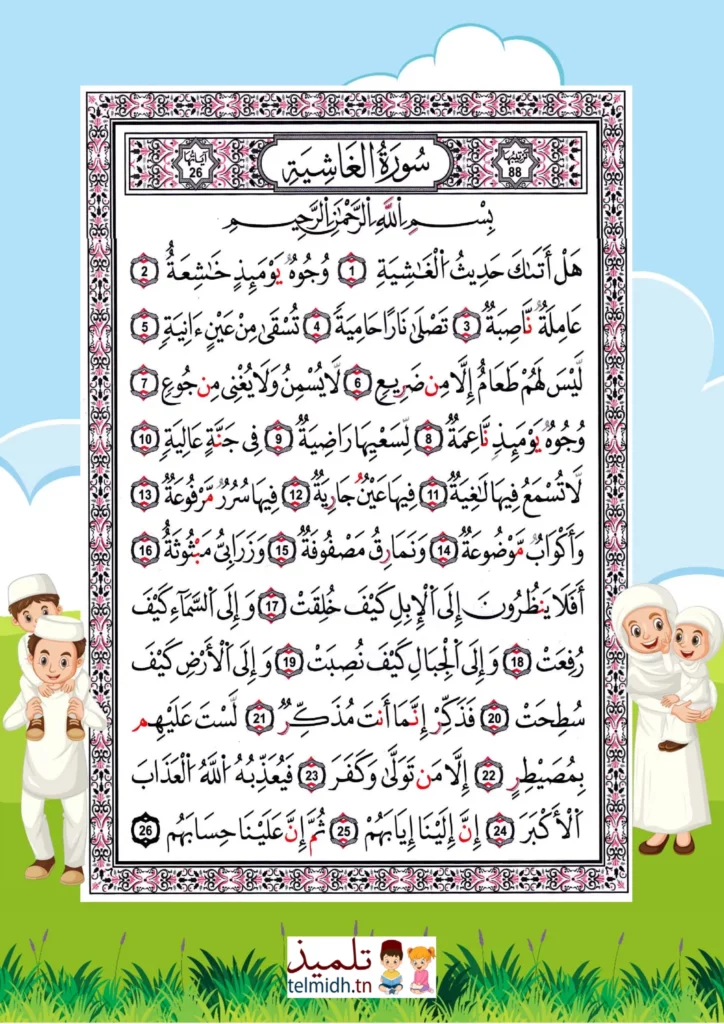 ترتيبها 88 سُورَةُ الغَاشِيَةِ آياتها 26
بِسْمِ اِ۬للَّهِ اِ۬لرَّحْمَٰنِ اِ۬لرَّحِيمِ
هَلْ أَتَىٰكَ حَدِيثُ اُ۬لْغَٰشِيَةِ 1 وُجُوهٌ يَوْمَئِذٍ خَٰشِعَةٌ 2
عَامِلَةٌ نَّاصِبَةٌ 3 تَصْلَىٰ نَارًا حَامِيَةً 4 تُسْقَىٰ مِنْ عَيْنٍ ءَانِيَةٍ 5
لَّيْسَ لَهُمْ طَعَامٌ إِلَّا مِن ضَرِيعٍ 6 لَّا يُسْمِنُ وَلَا يُغْنِي مِن جُوعٍ 7
وُجُوهٌ يَوْمَئِذٍ نَّاعِمَةٌ 8 لِّسَعْيِهَا رَاضِيَةٌ 9 فِي جَنَّةٍ عَالِيَةٍ 10
لَّا تُسْمَعُ فِيهَا لَٰغِيَةٌ 11 فِيهَا عَيْنٌ جَارِيَةٌ 12 فِيهَا سُرُرٌ مَّرْفُوعَةٌ 13
وَأَكْوَابٌ مَّوْضُوعَةٌ 14 وَنَمَارِقُ مَصْفُوفَةٌ 15 وَزَرَابِيُّ مَبْثُوثَةٌ 16
أَفَلَا يَنظُرُونَ إِلَى اَ۬لْإِبِلِ كَيْفَ خُلِقَتْ 17 وَإِلَى اَ۬لسَّمَآءِ كَيْفَ
رُفِعَتْ 18 وَإِلَى اَ۬لْجِبَالِ كَيْفَ نُصِبَتْ 19 وَإِلَى اَ۬لْأَرْضِ كَيْفَ
سُطِحَتْ 20 فَذَكِّرْ إِنَّمَا أَنتَ مُذَكِّرٌ 21 لَّسْتَ عَلَيْهِم
بِمُصَيْطِرٍ 22 إِلَّا مَن تَوَلَّىٰ وَكَفَرَ 23 فَيُعَذِّبُهُ اُ۬للَّهُ اُ۬لْعَذَابَ
اَ۬لْأَكْبَرَ 24 إِنَّ إِلَيْنَا إِيَابَهُمْ 25 ثُمَّ إِنَّ عَلَيْنَا حِسَابَهُم 26
تلميذ
telmidh.tn